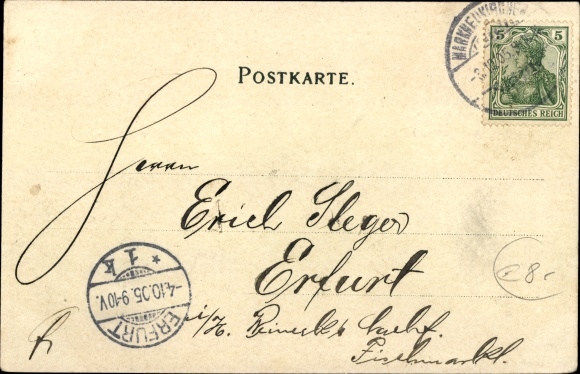 MARKNEUKIRCHEN
5 5
DEUTSCHES REICH
POSTKARTE.
Herrn
Erich Steger
Erfurt
ERFURT
-4.10.05.9-10V.
* 1 k
i/H. Reineck's Nachf.
Fischmarkt.